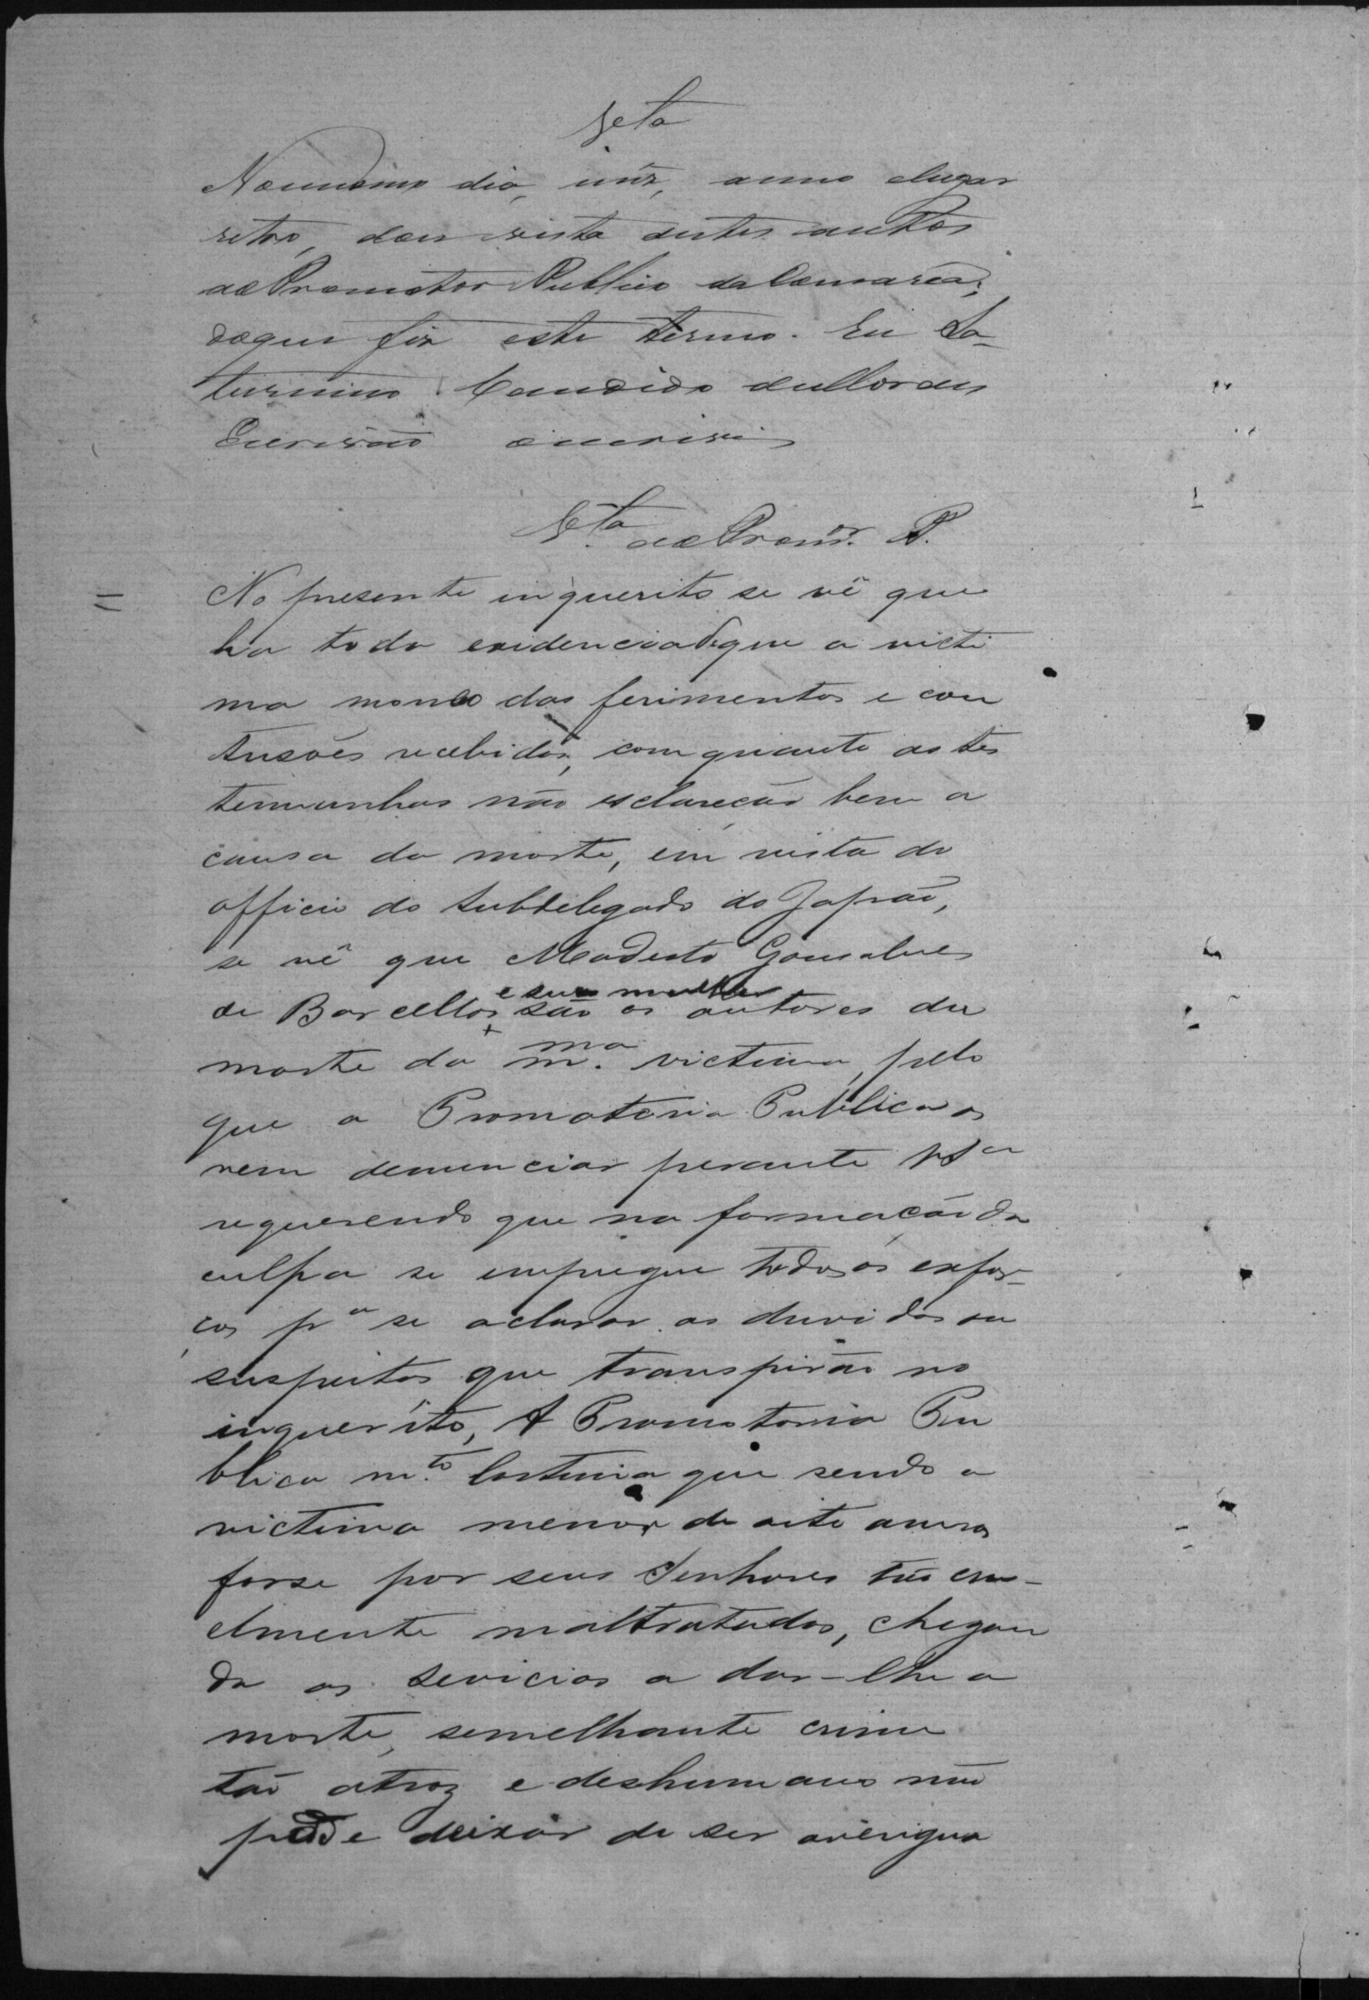 Vcta
No mesmo dia, mez, anno e lugar
retro, dou vista destes autos
ao Promotor Publico da Comarca;
do que fiz este termo. Eu Sa-
turnino Candido de Moraes
Escrivão escrivi
Vcta ao Promor. P.
No presente inquerito se vê que
ha toda evidencia de que a victi
ma morreo dos ferimentos e con
tusões recebidos, com quanto as tes
temunhas não esclareção bem a
causa da morte, em vista do
officio do subdelegado do Japão,
se vê que Modesto Gonsalves
de Barcellos e sua mulher são os autores da
morte da ma. victima, pelo
que a Promotoria Publica os
vem denunciar perante VSa
requerendo que na formação da
culpa se empregue todos os esfor-
ços pa se aclarar as duvidas ou
suspeitas que transpirão no
inquerito, A Promotoria Pu
blica mto lastima que sendo a
victima menor de oito annos
fosse por seus Senhores tão cru-
elmente maltratados, chegan
do as sevicias a dar-lhe a
morte, semelhante crime
tão atroz e deshumano não
pode deixar de ser averigua